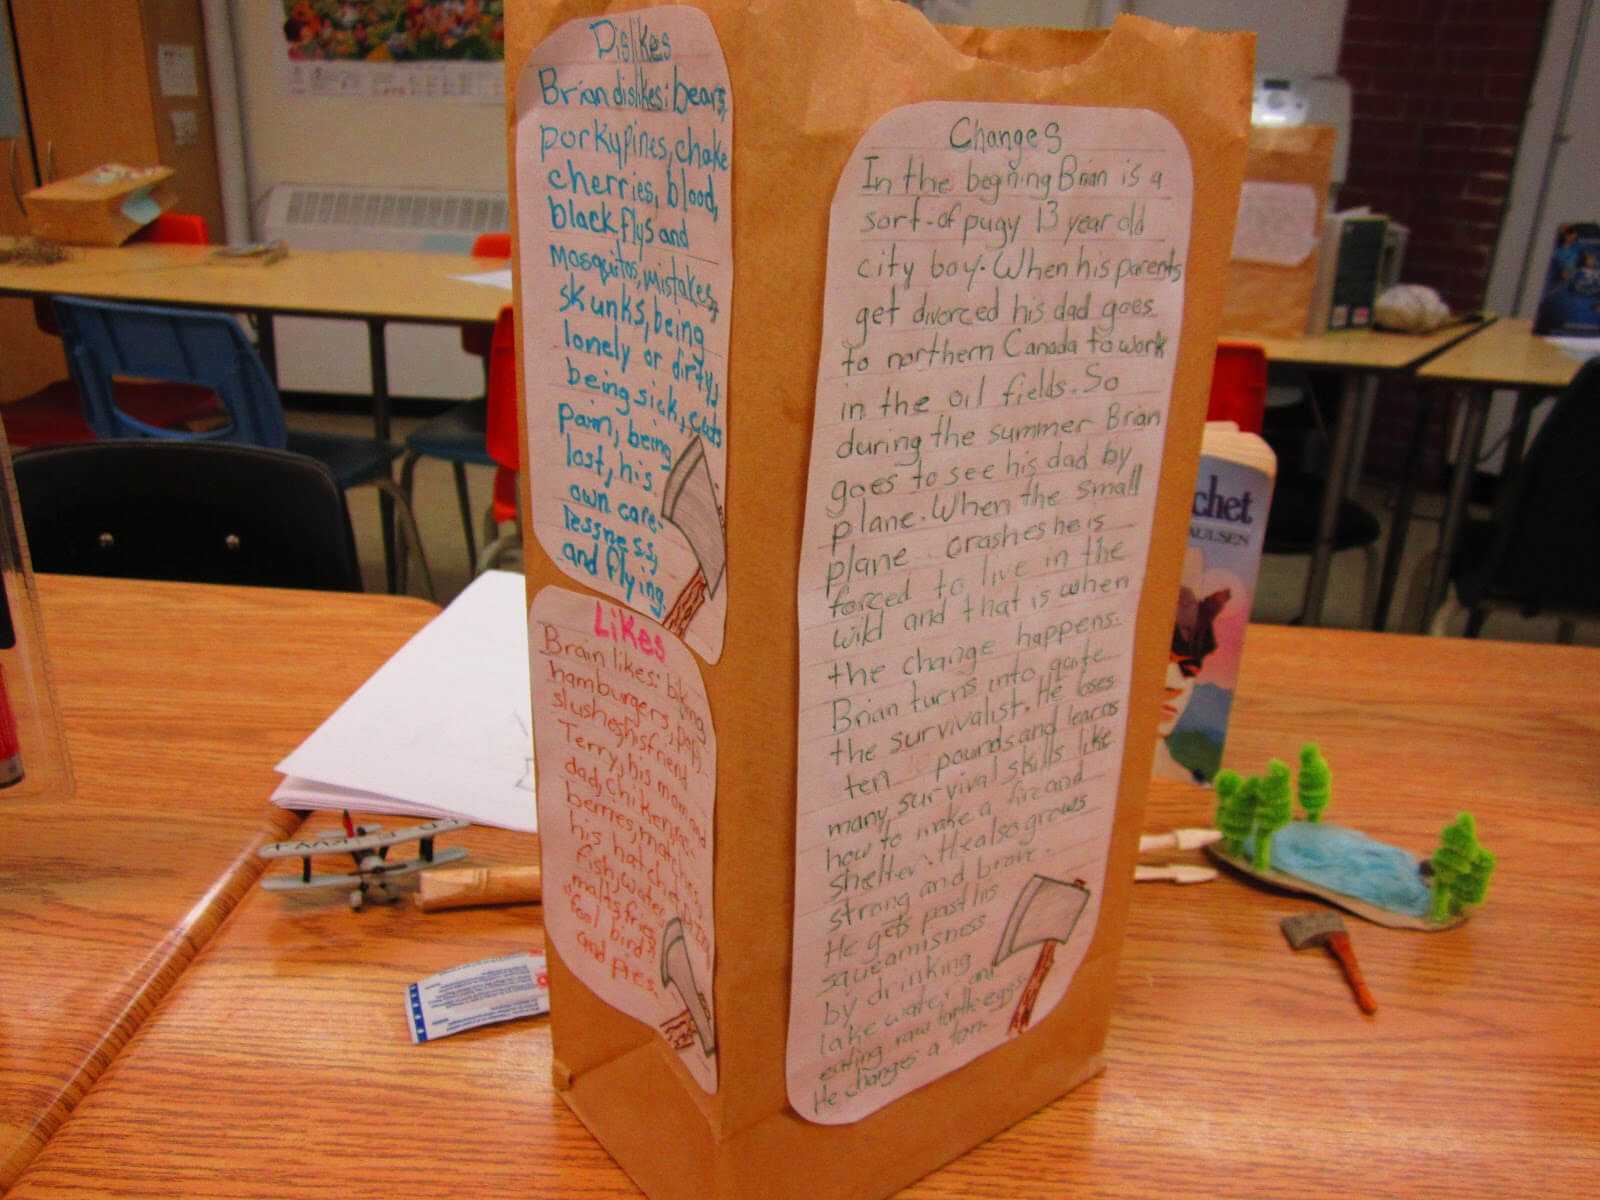 Dislikes
Brian dislikes: bears,
porkypines, choke
cherries, blood,
black flys and
mosquitos, mistakes,
skunks, being
lonely or dirty,
being sick, cuts
pain, being
lost, his
own care-
lessness,
and flying.
Likes
Brain likes: biking,
hamburgers, pop,
slushes, his friend
Terry, his mom and
dad, chiken, ras-
berries, matches,
his hatchet,
fish, water,
malts, fries,
"fool bird"
and pies.
Changes
In the begning Brian is a
sort-of pugy 13 year old
city boy. When his parents
get divorced his dad goes
to northern Canada to work
in the oil fields. So
during the summer Brian
goes to see his dad by
plane. When the small
plane crashes he is
forced to live in the
wild and that is when
the change happens.
Brian turns into quite
the survivalist. He loses
ten pounds and learns
many survival skills like
how to make a fire and
shelter. He also grows
strong and brave.
He gets past his
squeamisness
by drinking
lake water and
eating raw turtle eggs.
He changes a ton.
chet
AULSEN